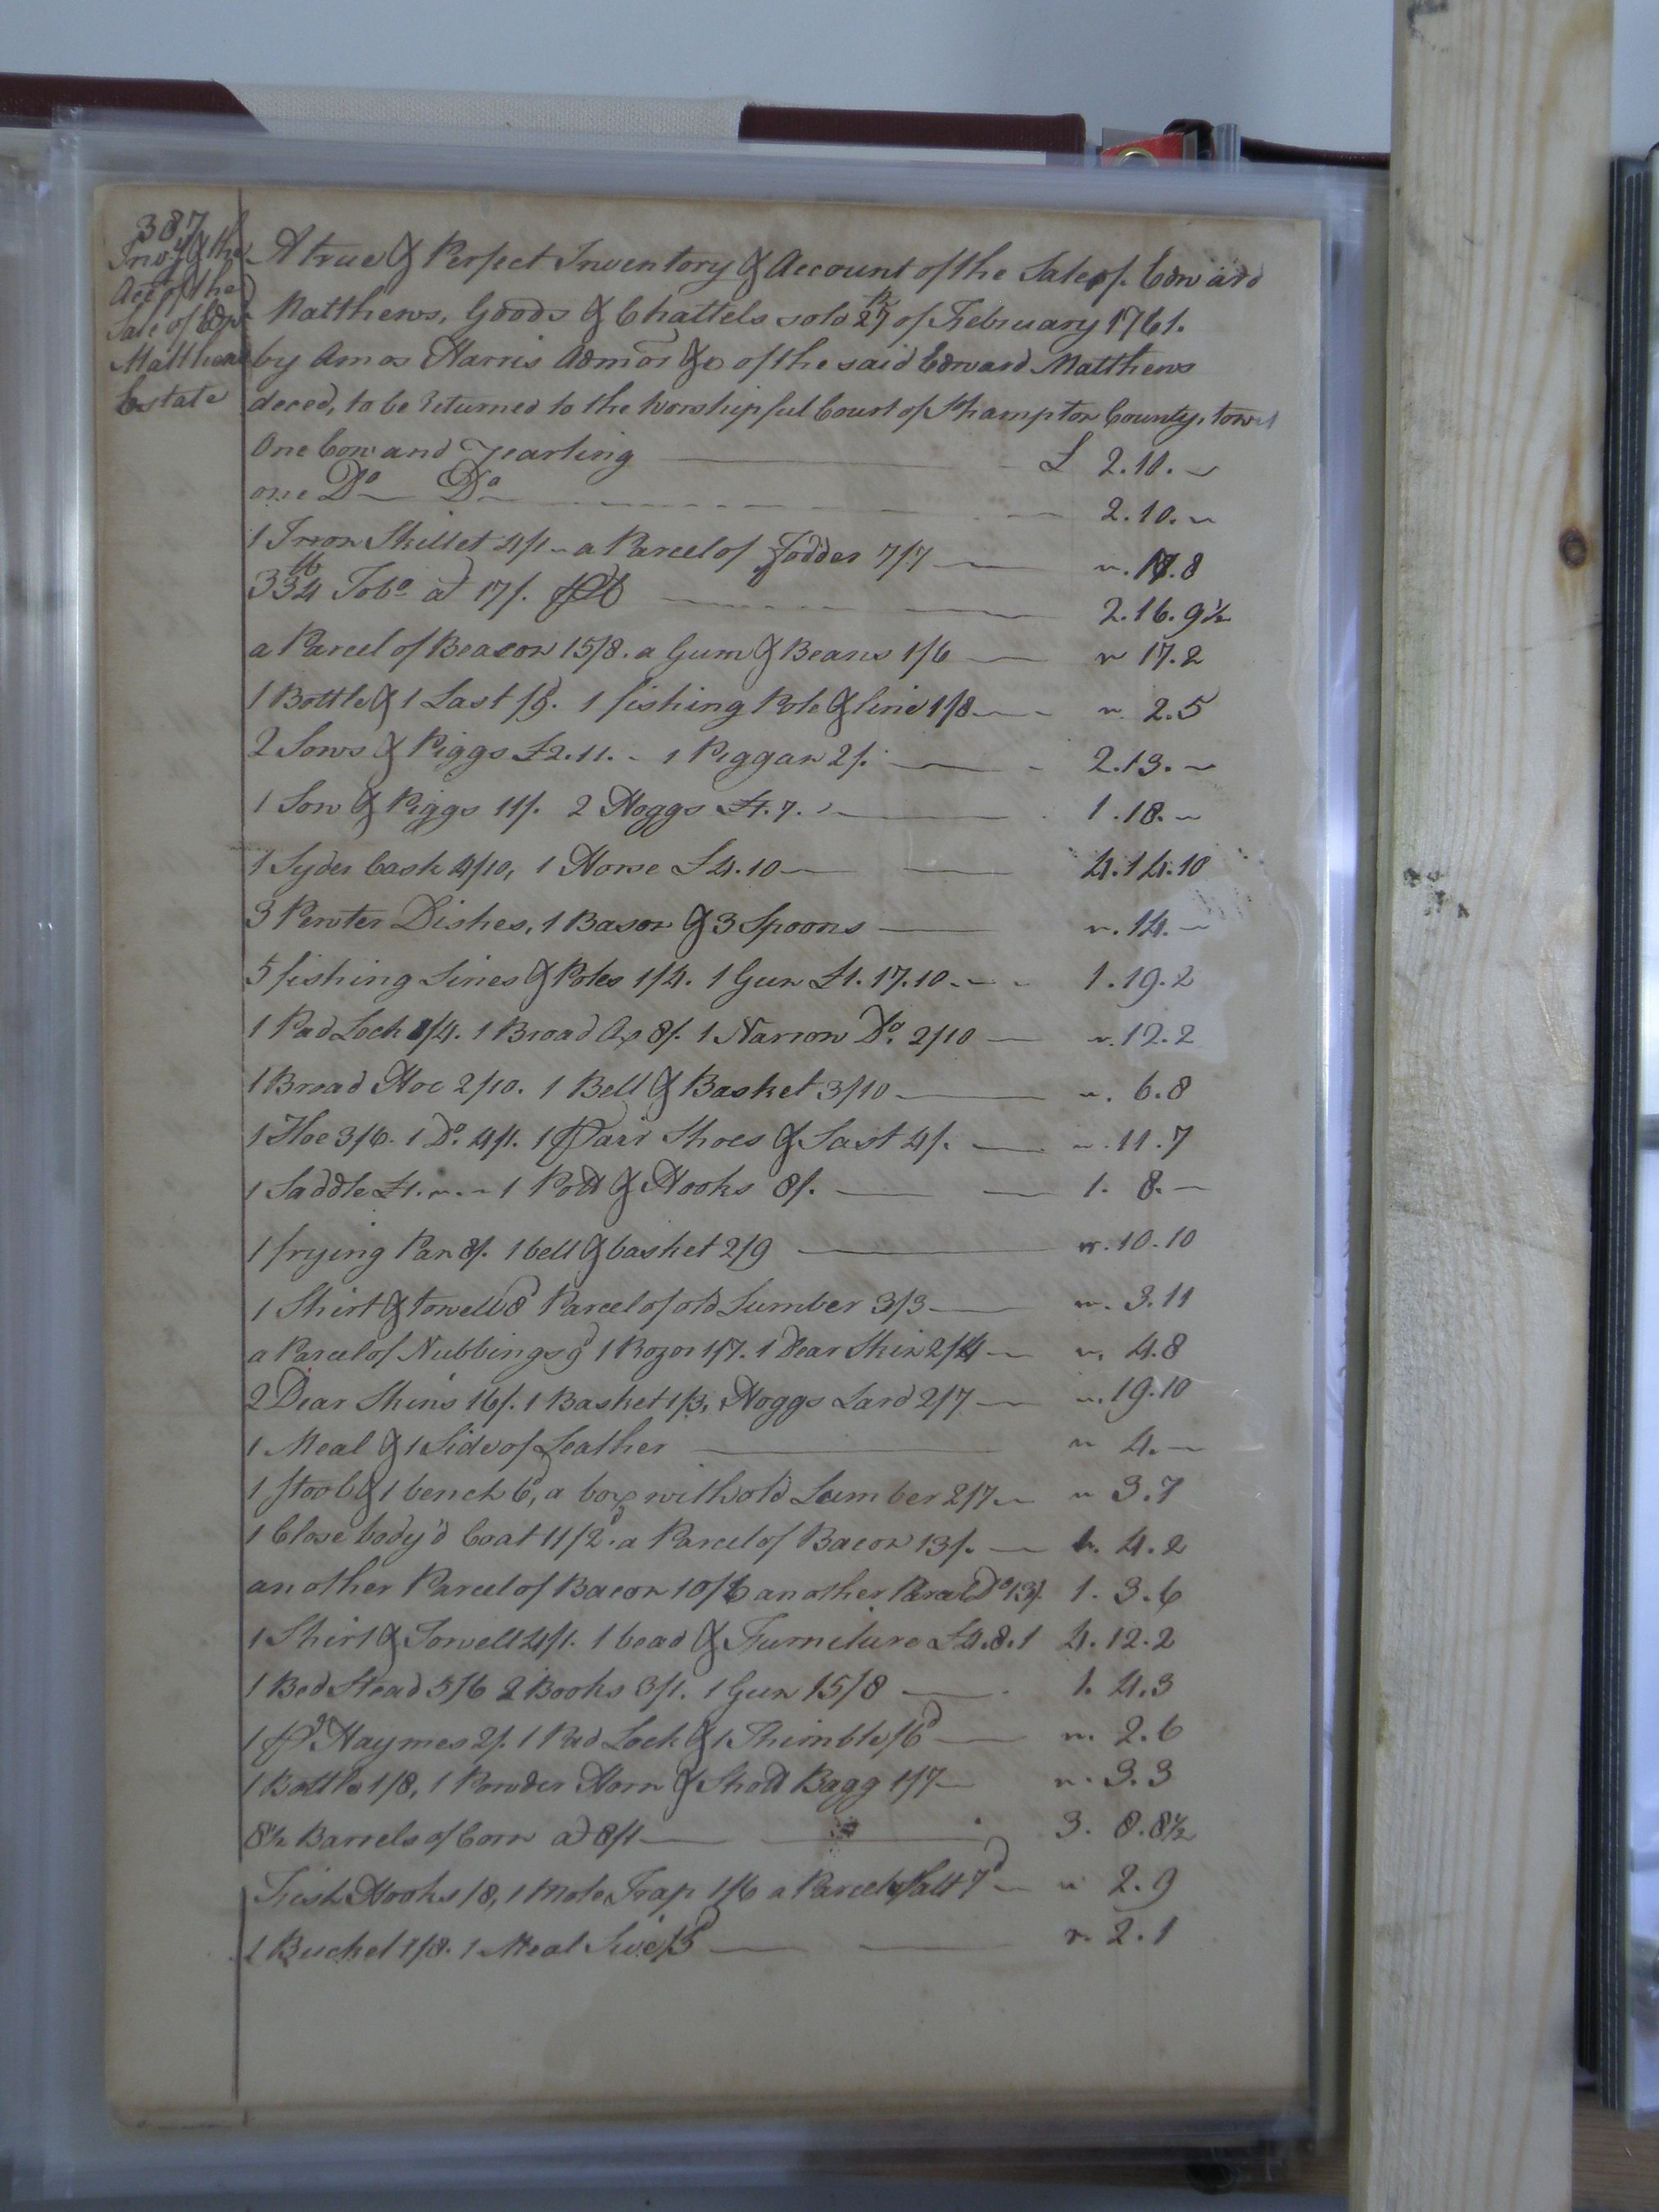 387
Invy & the
Acct of the
Sale of Edwd
Matthews
Estate
A true & Perfect Inventory & Account of the Sale of Edward
Matthews, Goods & Chattels sold 27 of February 1761.
by Amos Harris Admor &c of the said Edward Matthews
deced, to be returned to the Worshipful Court of Shampton County, towit
One Cow and Yearling £ 2.10. ~
one Do Do 2.10. ~
1 Iron Skillet 4/1 ~ a Parcel of Fodder 7/7 ~. .8
334 lb Tobo at 17/. 2.16.9½
a Parcel of Beacon 15/8. a Gum & Beans 1/6 ~ 17.2
1 Bottle & 1 Last /9. 1 fishing Pole & line 1/8 ~ 2.5
2 Sows & Piggs £2.11. - 1 Piggan 2/. 2.13. ~
1 Sow & Piggs 11/. 2 Hoggs £1.7. ~ 1.18. ~
1 Syder Cask 4/10, 1 Horse £4.10 4.14.10
3 Pewter Dishes, 1 Bason & 3 Spoons ~. 14. ~
5 fishing Lines & Poles 1/4. 1 Gun £1.17.10 1.19.2
1 Pad Lock 1/4. 1 Broad Ax 8/. 1 Narrow Do. 2/10 ~. 12.2
1 Broad Hoe 2/10. 1 Bell & Basket 3/10 ~. 6.8
1 Hoe 3/6. 1 Do. 4/1. 1 Pair Shoes & Last 4/. ~. 11.7
1 Saddle £1. ~. ~ 1 Pott & Hooks 8/. 1. 8. ~
1 frying Pan 8/. 1 bell & basket 2/9 ~. 10.10
1 Shirt & towell 8d Parcel of old Lumber 3/3 ~. 3.11
a Parcel of Nubbings 9d 1 Rozor 1/7. 1 Dear Skin 2/4 ~. 4.8
2 Dear Skins 16/. 1 Basket 1/3, Hoggs Lard 2/7 ~. 19.10
1 Meal & 1 Side of Leather ~ 4. ~
1 stool & 1 bench 6d, a box with old Lumber 2/7 ~ ~ 3.7
1 Close body'd Coat 11/2d. a Parcel of Bacon 13/. 1. 4.2
another Parcel of Bacon 10/6 another Parcel Do 13/. 1. 3.6
1 Shirt & Towell 4/1. 1 bead & Furniture £4.8.1 4.12.2
1 Bed Stead 5/6 2 Books 3/1. 1 Gun 15/8 1. 4.3
1 Pr Haymes 2/. 1 Pad Lock & 1 Thimble /6d ~. 2.6
1 Bottle 1/8, 1 Powder Horn & Shott Bagg 1/7 ~. 3.3
8½ Barrels of Corn at 8/1 3. 8.8½
Fish Hooks /8, 1 Mole Trap 1/6 a Parcel of Salt 7d ~ 2.9
1 Bucket 1/8. 1 Meal Sive /5d ~. 2.1